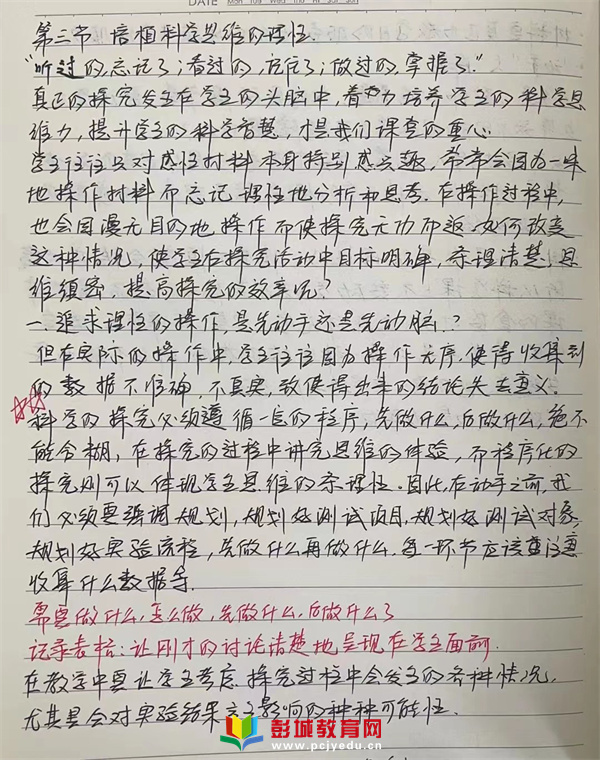 第三节 培植科学思维的理性.
"听过的,忘记了;看过的,记住了;做过的,掌握了."
真正的探究发生在学生的头脑中,着力培养学生的科学思
维力,提升学生的科学智慧,才是我们课堂的重心.
学生往往只对感性材料本身特别感兴趣,常常会因为一味
地操作材料而忘记理性地分析和思考.在操作过程中,
也会因漫无目的地操作而使探究无功而返.如何改变
这种情况,使学生在探究活动中目标明确,条理清楚,思
维缜密,提高探究的效率呢?
一.追求理性的操作,是先动手还是先动脑?
但在实际的操作中,学生往往因为操作无序,使得收集到
的数据不准确,不真实,致使得出来的结论失去意义.
科学的探究必须遵循一定的程序,先做什么,后做什么,绝不
能含糊,在探究的过程中讲究思维的体验,而程序化的
探究则可以体现学生思维的条理性.因此,在动手之前,我
们必须要强调规划,规划好测试项目,规划好测试对象,
规划好实验流程,先做什么再做什么.每一环节应该要注意
收集什么数据等.
需要做什么,怎么做,先做什么,后做什么
记录表格:让刚才的讨论清楚地呈现在学生面前.
在教学中要让学生考虑探究过程中会发生的各种情况,
尤其是会对实验结果产生影响的种种可能性.
彭城教育网
www.pcjyedu.cn